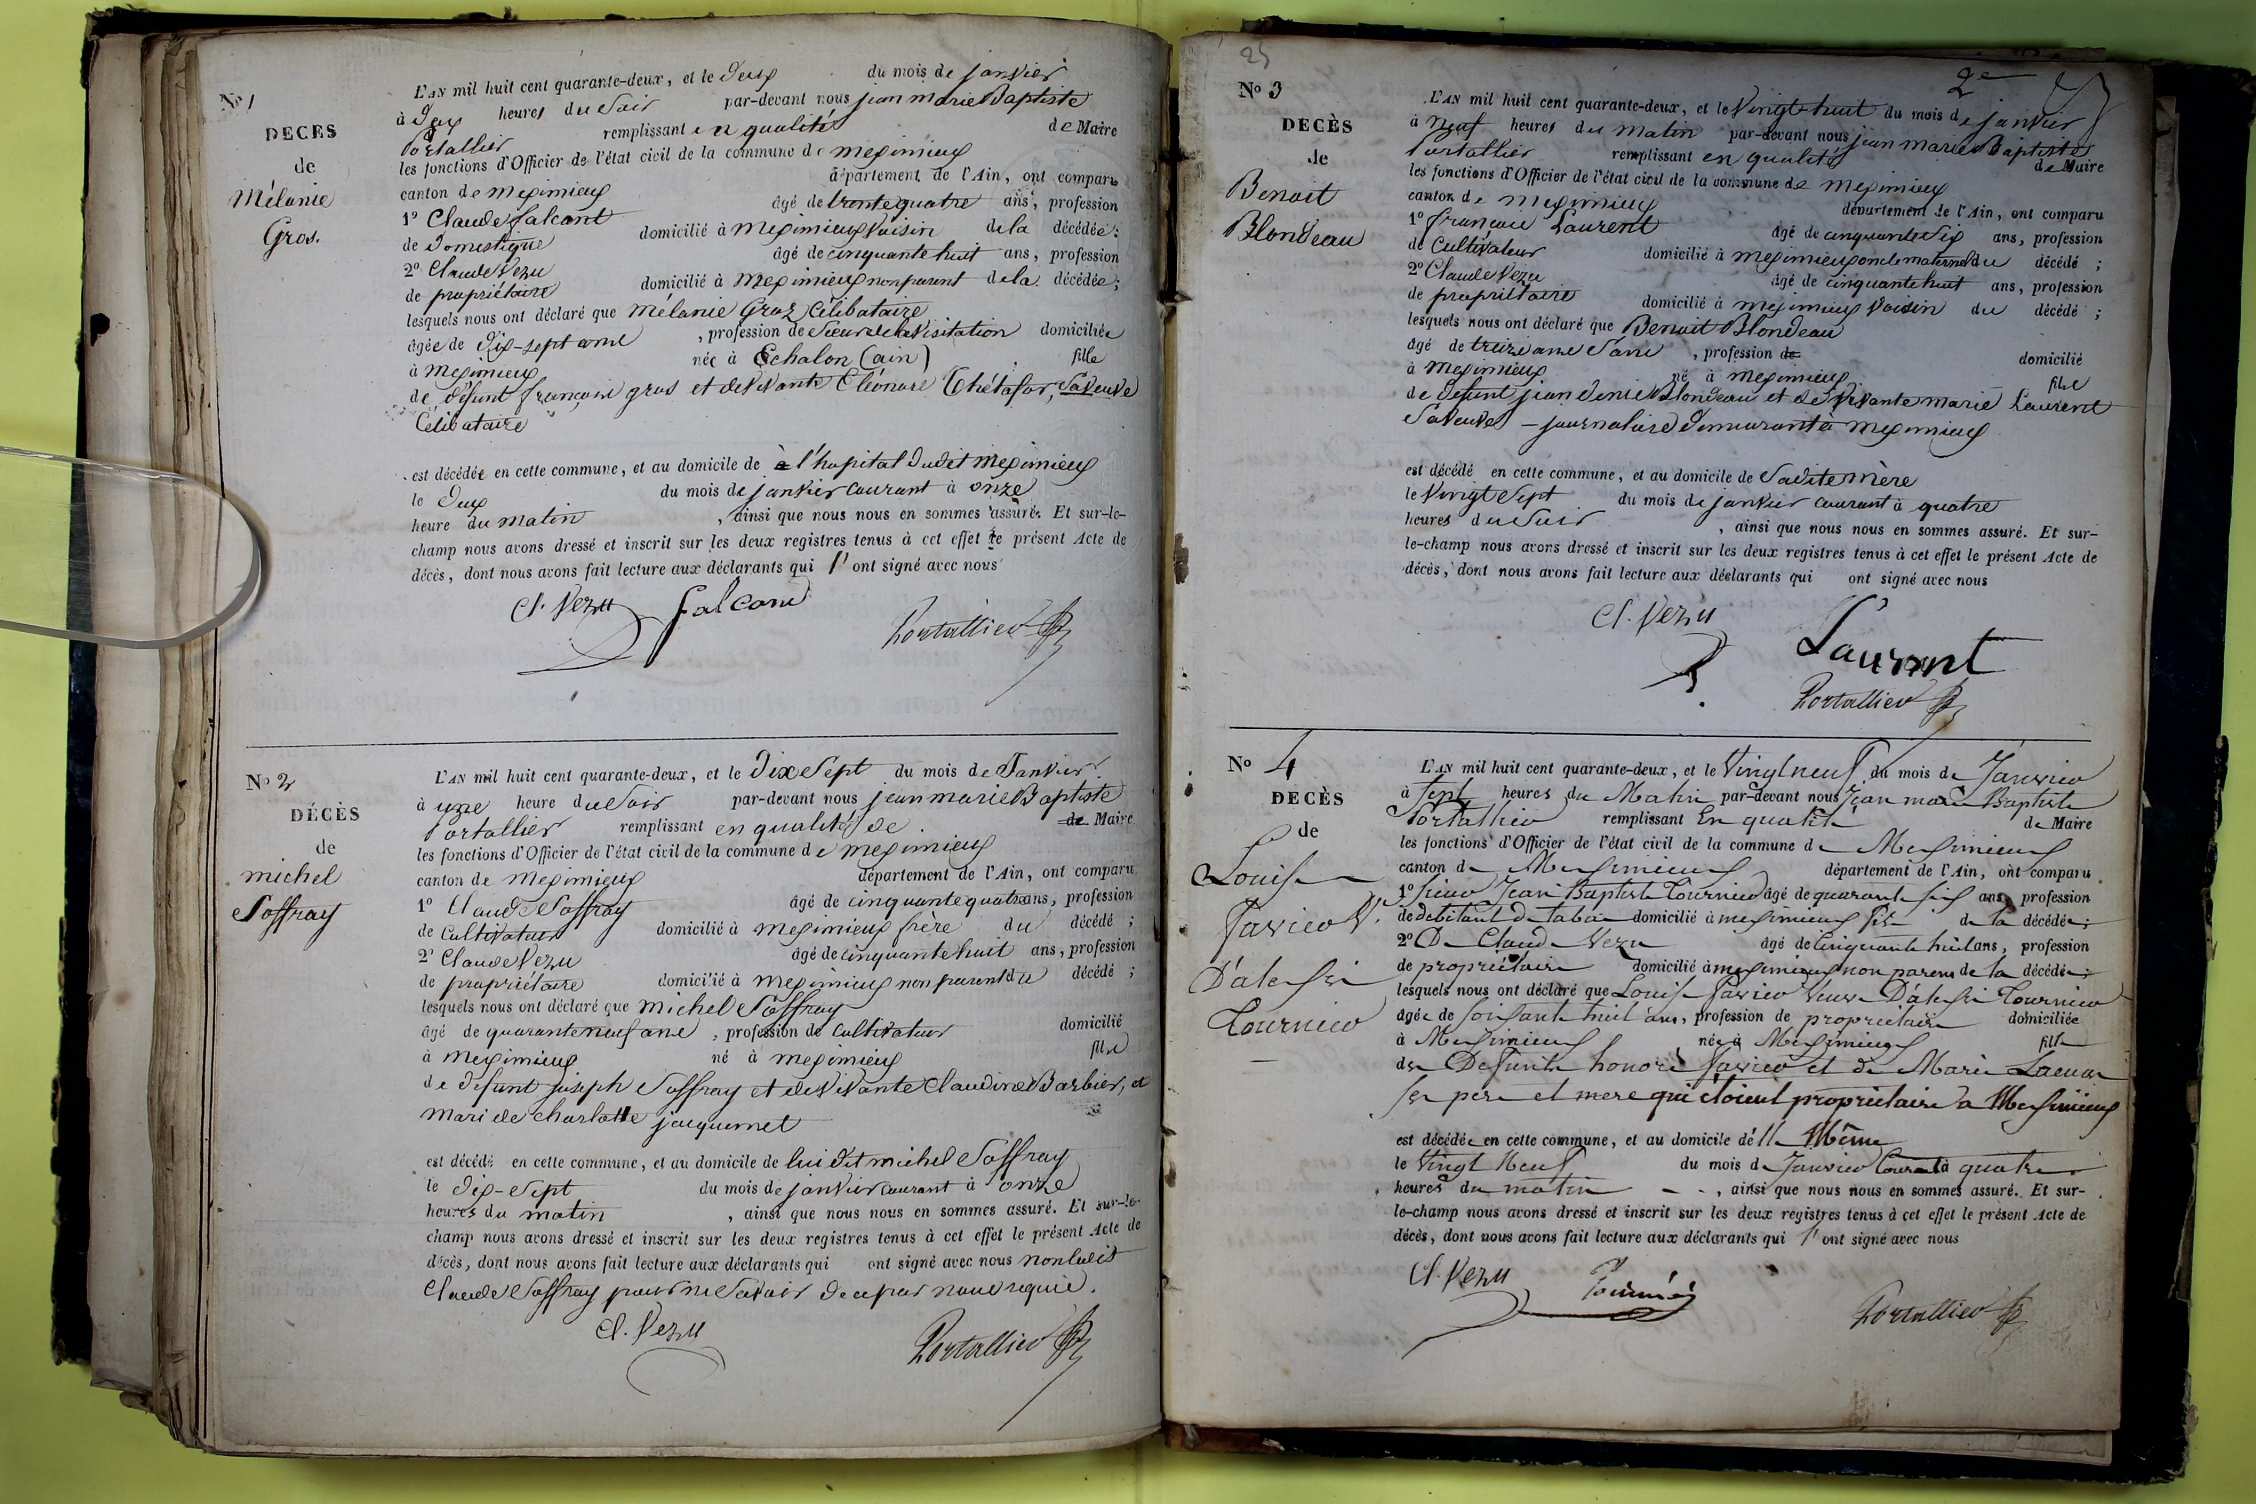 No 1
DECES
de
Mélanie
Gros.
L'AN mil huit cent quarante-deux, et le deux du mois de janvier
à deux heures du Soir par-devant nous jean marie Baptiste
Portallier remplissant en qualité de Maire
les fonctions d'Officier de l'état civil de la commune de meximieux
canton de meximieux département de l'Ain, ont comparu
1º Claude falcont âgé de trente quatre ans, profession
de Domestique domicilié à meximieux Voisin de la décédée;
2º Claude Vezu âgé de cinquante huit ans, profession
de propriétaire domicilié à meximieux non parent de la décédée;
lesquels nous ont déclaré que mélanie Gros Célibataire
âgée de dix-sept ans, profession de Sœur de la Visitation domiciliée
à meximieux née à Echalon (ain) fille
de défunt françois gros et de Vivante Eléonore, Sa Veuve
Célibataire
est décédée en cette commune, et au domicile de à l'hopital dudit meximieux
le deux du mois de janvier courant à onze
heure du matin, ainsi que nous nous en sommes assuré. Et sur-le-
champ nous avons dressé et inscrit sur les deux registres tenus à cet effet le présent Acte de
décès, dont nous avons fait lecture aux déclarants qui l' ont signé avec nous
Cl. Vezu falcond
Portallier
No 2
DÉCÈS
de
michel
Soffray
L'AN mil huit cent quarante-deux, et le dix Sept du mois de Janvier
à une heure du Soir par-devant nous jean marie Baptiste
Portallier remplissant en qualité de de Maire
les fonctions d'Officier de l'état civil de la commune de meximieux
canton de meximieux département de l'Ain, ont comparu
1º Claude Soffray âgé de cinquante quatre ans, profession
de Cultivateur domicilié à meximieux frère du décédé;
2º Claude Vezu âgé de cinquante huit ans, profession
de propriétaire domicilié à meximieux non parent du décédé;
lesquels nous ont déclaré que michel Soffray
âgé de quarante neuf ans, profession de Cultivateur domicilié
à meximieux né à meximieux fils
de défunt joseph Soffray et de Vivante Claudine Barbier, et
mari de charlotte jacquemet
est décédé en cette commune, et au domicile de lui dit michel Soffray
le dix-Sept du mois de janvier courant à onze
heures du matin, ainsi que nous nous en sommes assuré. Et sur-le-
champ nous avons dressé et inscrit sur les deux registres tenus à cet effet le présent Acte de
décès, dont nous avons fait lecture aux déclarants qui ont signé avec nous non ledit
Claude Soffray pour ne Savoir de ce par nous requis.
Cl. Vezu Portallier
25
2e
No 3
DECÈS
de
Benoit
Blondeau
L'AN mil huit cent quarante-deux, et le Vingt huit du mois de janvier
à neuf heures du matin par-devant nous jean marie Baptiste
Portallier remplissant en qualité de Maire
les fonctions d'Officier de l'état civil de la commune de meximieux
canton de meximieux département de l'Ain, ont comparu
1º françois Laurent âgé de cinquante Six ans, profession
de Cultivateur domicilié à meximieux oncle maternel du décédé;
2º Claude Vezu âgé de cinquante huit ans, profession
de propriétaire domicilié à meximieux Voisin du décédé;
lesquels nous ont déclaré que Benoit Blondeau
âgé de treize ans, profession de domicilié
à meximieux né à meximieux fils
de defunt jean denis Blondeau et de Vivante marie Laurent
Sa Veuve – journalière demeurant à meximieux
est décédé en cette commune, et au domicile de Sadite mère
le Vingt Sept du mois de janvier courant à quatre
heures du Soir, ainsi que nous nous en sommes assuré. Et sur-
le-champ nous avons dressé et inscrit sur les deux registres tenus à cet effet le présent Acte de
décès, dont nous avons fait lecture aux déclarants qui ont signé avec nous
Cl. Vezu
Laurent
Portallier
No 4
DECÈS
de
Louise
Javier V.
D'alexi
Tournier
L'AN mil huit cent quarante-deux, et le Vingt neuf du mois de Janvier
à Sept heures du Matin par-devant nous Jean marie Baptiste
Portallier remplissant En qualité de Maire
les fonctions d'Officier de l'état civil de la commune de Meximieux
canton de Meximieux département de l'Ain, ont comparu
1º Sieur Jean Baptiste Tournier âgé de quarante six ans, profession
de debitant de tabac domicilié à meximieux fils de la décédée;
2º Claude Vezu âgé de Cinquante huit ans, profession
de propriétaire domicilié à meximieux non parent de la décédée;
lesquels nous ont déclaré que Louise Javier Veuve D'alexi Tournier
âgée de Soixante huit ans, profession de propriétaire domiciliée
à Meximieux née à Meximieux fille
de Defunts honoré Javier et de Marie
Ses pere et mere qui étoient propriétaire a Meximieux
est décédée en cette commune, et au domicile d'Elle Même
le Vingt Neuf du mois de Janvier Courant à quatre
heures du matin – -, ainsi que nous nous en sommes assuré. Et sur-
le-champ nous avons dressé et inscrit sur les deux registres tenus à cet effet le présent Acte de
décès, dont nous avons fait lecture aux déclarants qui l' ont signé avec nous
Cl. Vezu Portallier